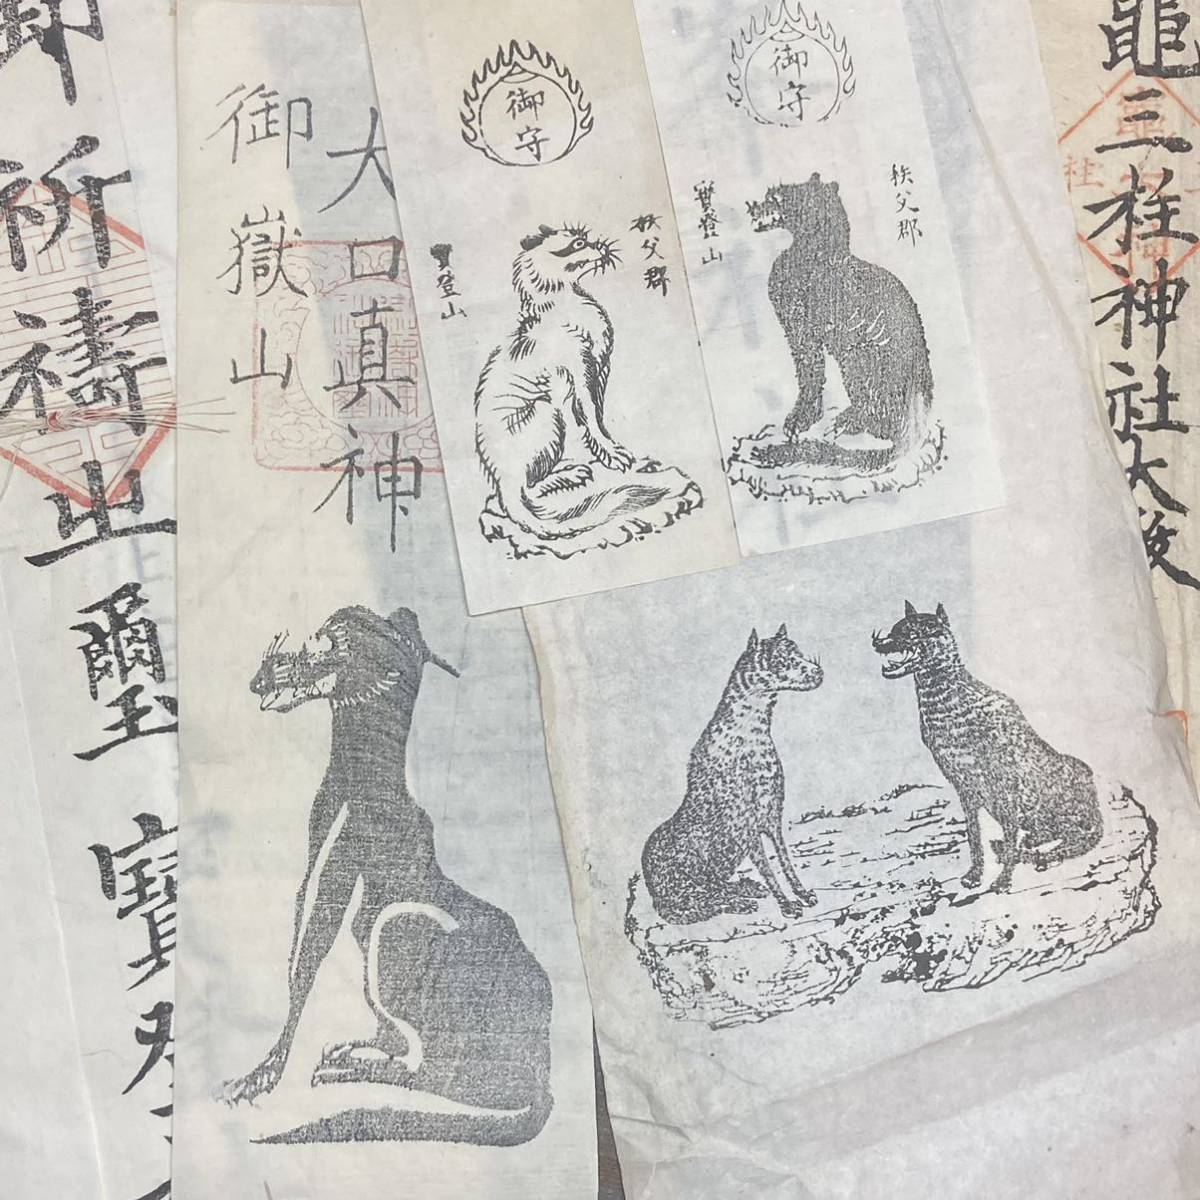 御祈禱之璽
寶
大口真神
御嶽山
御守
秩父郡
登山
御守
秩父郡
寶登山
竈三柱神社大